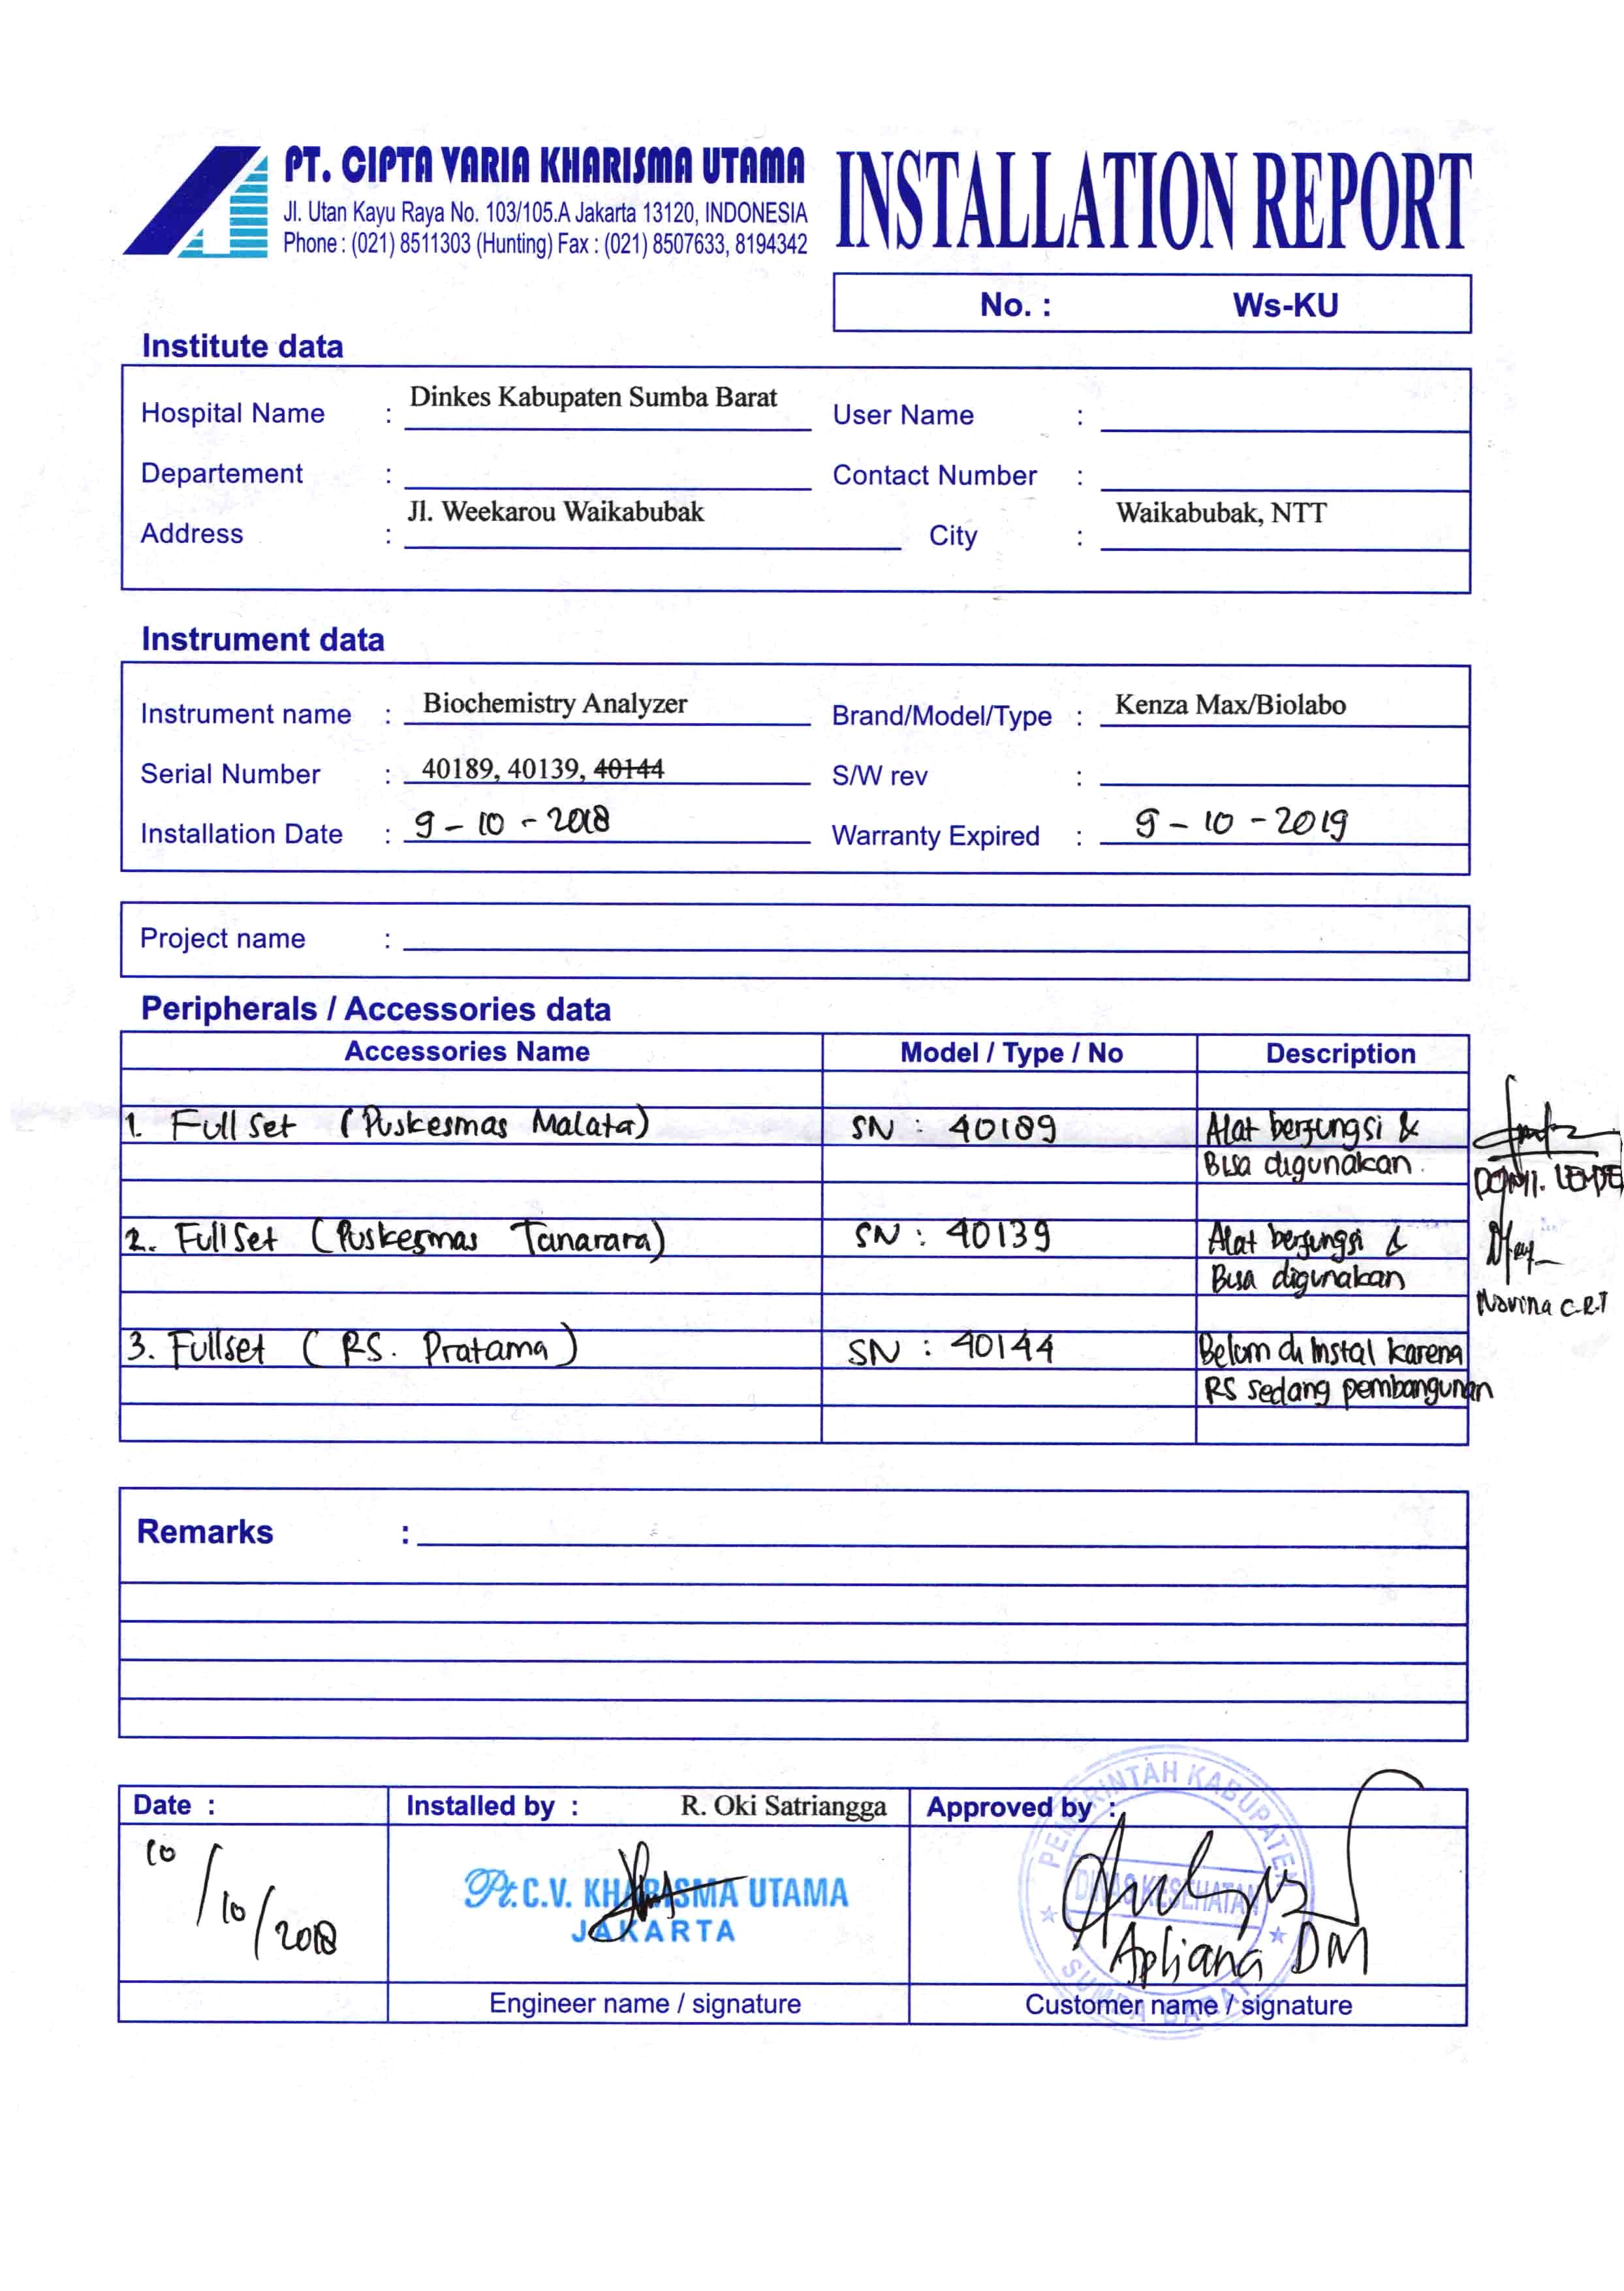 PT. CIPTA VARIA KHARISMA UTAMA
Jl. Utan Kayu Raya No. 103/105.A Jakarta 13120, INDONESIA
Phone : (021) 8511303 (Hunting) Fax : (021) 8507633, 8194342
INSTALLATION REPORT
No. : Ws-KU
Institute data
Hospital Name : Dinkes Kabupaten Sumba Barat User Name :
Departement : Contact Number :
Address : Jl. Weekarou Waikabubak City : Waikabubak, NTT
Instrument data
Instrument name : Biochemistry Analyzer Brand/Model/Type : Kenza Max/Biolabo
Serial Number : 40189, 40139, 40144 S/W rev :
Installation Date : 9 - 10 - 2018 Warranty Expired : 9 - 10 - 2019
Project name :
Peripherals / Accessories data
Accessories Name Model / Type / No Description
1. Full Set (Puskesmas Malata) SN : 40189 Alat berfungsi &
Bisa digunakan.
2. Full Set (Puskesmas Tanarara) SN : 40139 Alat berfungsi &
Bisa digunakan
Novina C.R.T
3. Fullset ( RS. Pratama ) SN : 40144 Belum di Instal karena
RS sedang pembangunan
Remarks :
Date : Installed by : R. Oki Satriangga Approved by :
10/10/2018
Pt. C.V. KHARISMA UTAMA
JAKARTA
PEMERINTAH KABUPATEN
DINAS KESEHATAN
SUMBA BARAT
Apliana DM
Engineer name / signature Customer name / signature